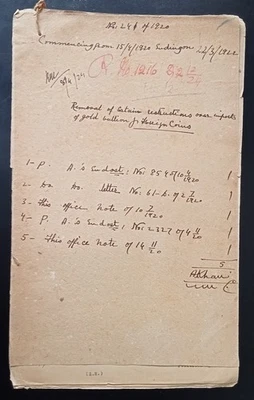 No 241 of 1920
Commencing from 15/9/1920 Ending on 22/3/1922
R. No 1216
Removal of certain restrictions over imports
of gold bullion & Foreign Coins
1- P. A.'s Endost: No: 8545 of 10 9/1920 1
2- Do Do. letter No. 61-L. of 2 7/1920 1
3- This office Note of 10 7/1920 1
4- P. A.'s Endost: No: 2327 of 4 11/20 1
5- This office note of 14 11/20 1
5